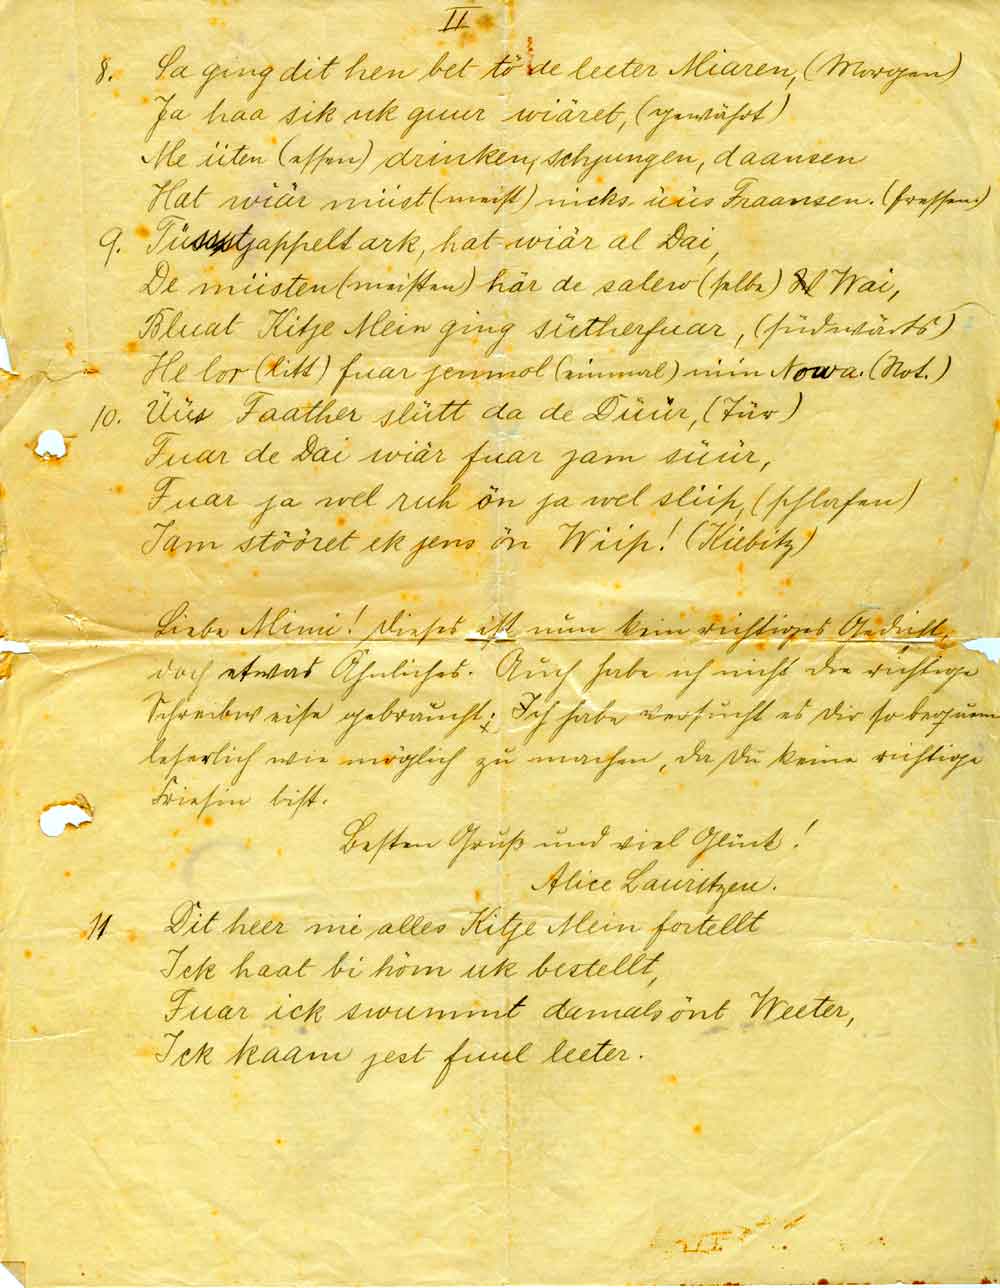 II
8. Sa ging dit hen bet tö de leeter Miaren, (Morgen)
Ja haa sik uk guur wiäret, (gewährt)
Me üten (essen) drinken, schjungen, daansen
Hat wiär miist (meist) nicks üüs Fraansen. (fressen)
9. tjappelt ark, hat wiär al Dai,
De miisten (meisten) här de salew (selbe) Wai,
Bluat Kitje Mein ging sütherfuar, (südwärts)
He lor (litt) fuar jenmol (einmal) niin Nowa. (Not.)
10. Üüs Faather slütt da de Düür, (Tür)
Fuar de Dai wiär fuar jam süür,
Fuar ja wel ruh ön ja wel sliip, (schlafen)
Jam stööret ek jens ön Wiip! (Kiebitz)
Liebe Mimi! Dieses ist nun kein richtiges Gedicht,
doch etwas Ähnliches. Auch habe ich nicht die richtige
Schreibweise gebraucht; Ich habe versucht es Dir so bequem
leserlich wie möglich zu machen, da Du keine richtige
Friesin bist.
Besten Gruß und viel Glück!
Alice Lauritzen.
11 Dit heer mi alles Kitje Mein fortellt
Ick haat bi höm uk bestellt,
Fuar ick swummt damals önt Weeter,
Ick kaam jest fuul leeter.